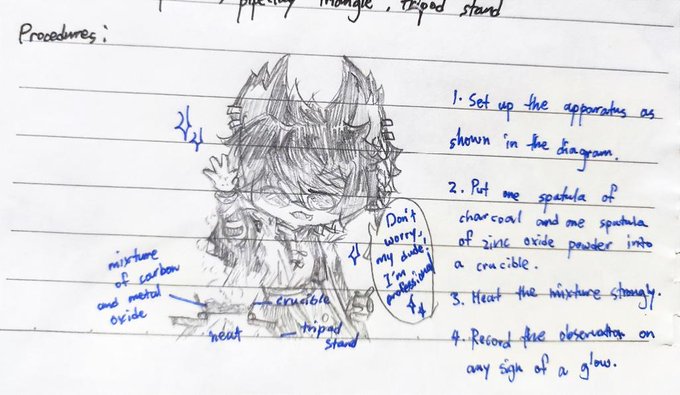 pipeclay triangle, tripod stand
Procedures:
1. Set up the apparatus as
shown in the diagram.
2. Put one spatula of
charcoal and one spatula
of zinc oxide powder into
a crucible.
3. Heat the mixture strongly.
4. Record the observation on
any sign of a glow.
Don't
worry,
my dude,
I'm
professional
mixture
of carbon
and metal
oxide
crucible
heat
tripod
stand